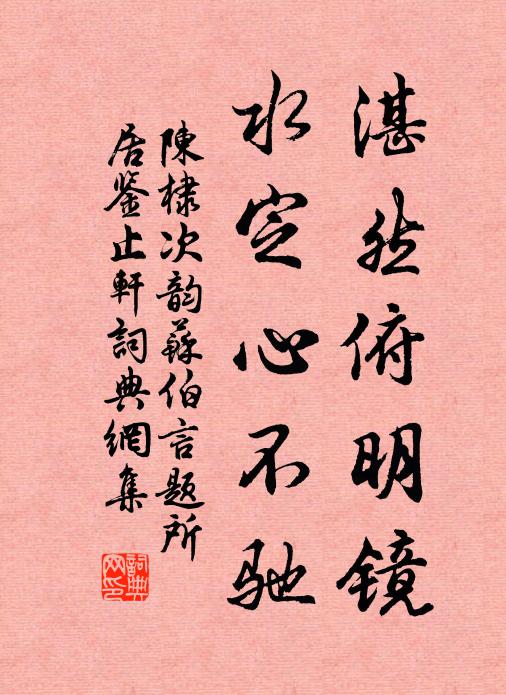 湛然俯明镜
水定心不驰
陳棣次韵蘇伯言题所
居鉴止軒詞典網集
詞典
网印